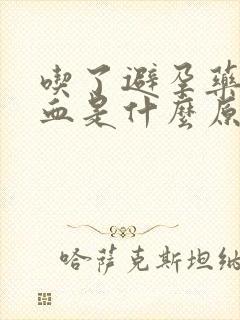 喫了避孕藥
血是什麼原
哈薩克斯坦納